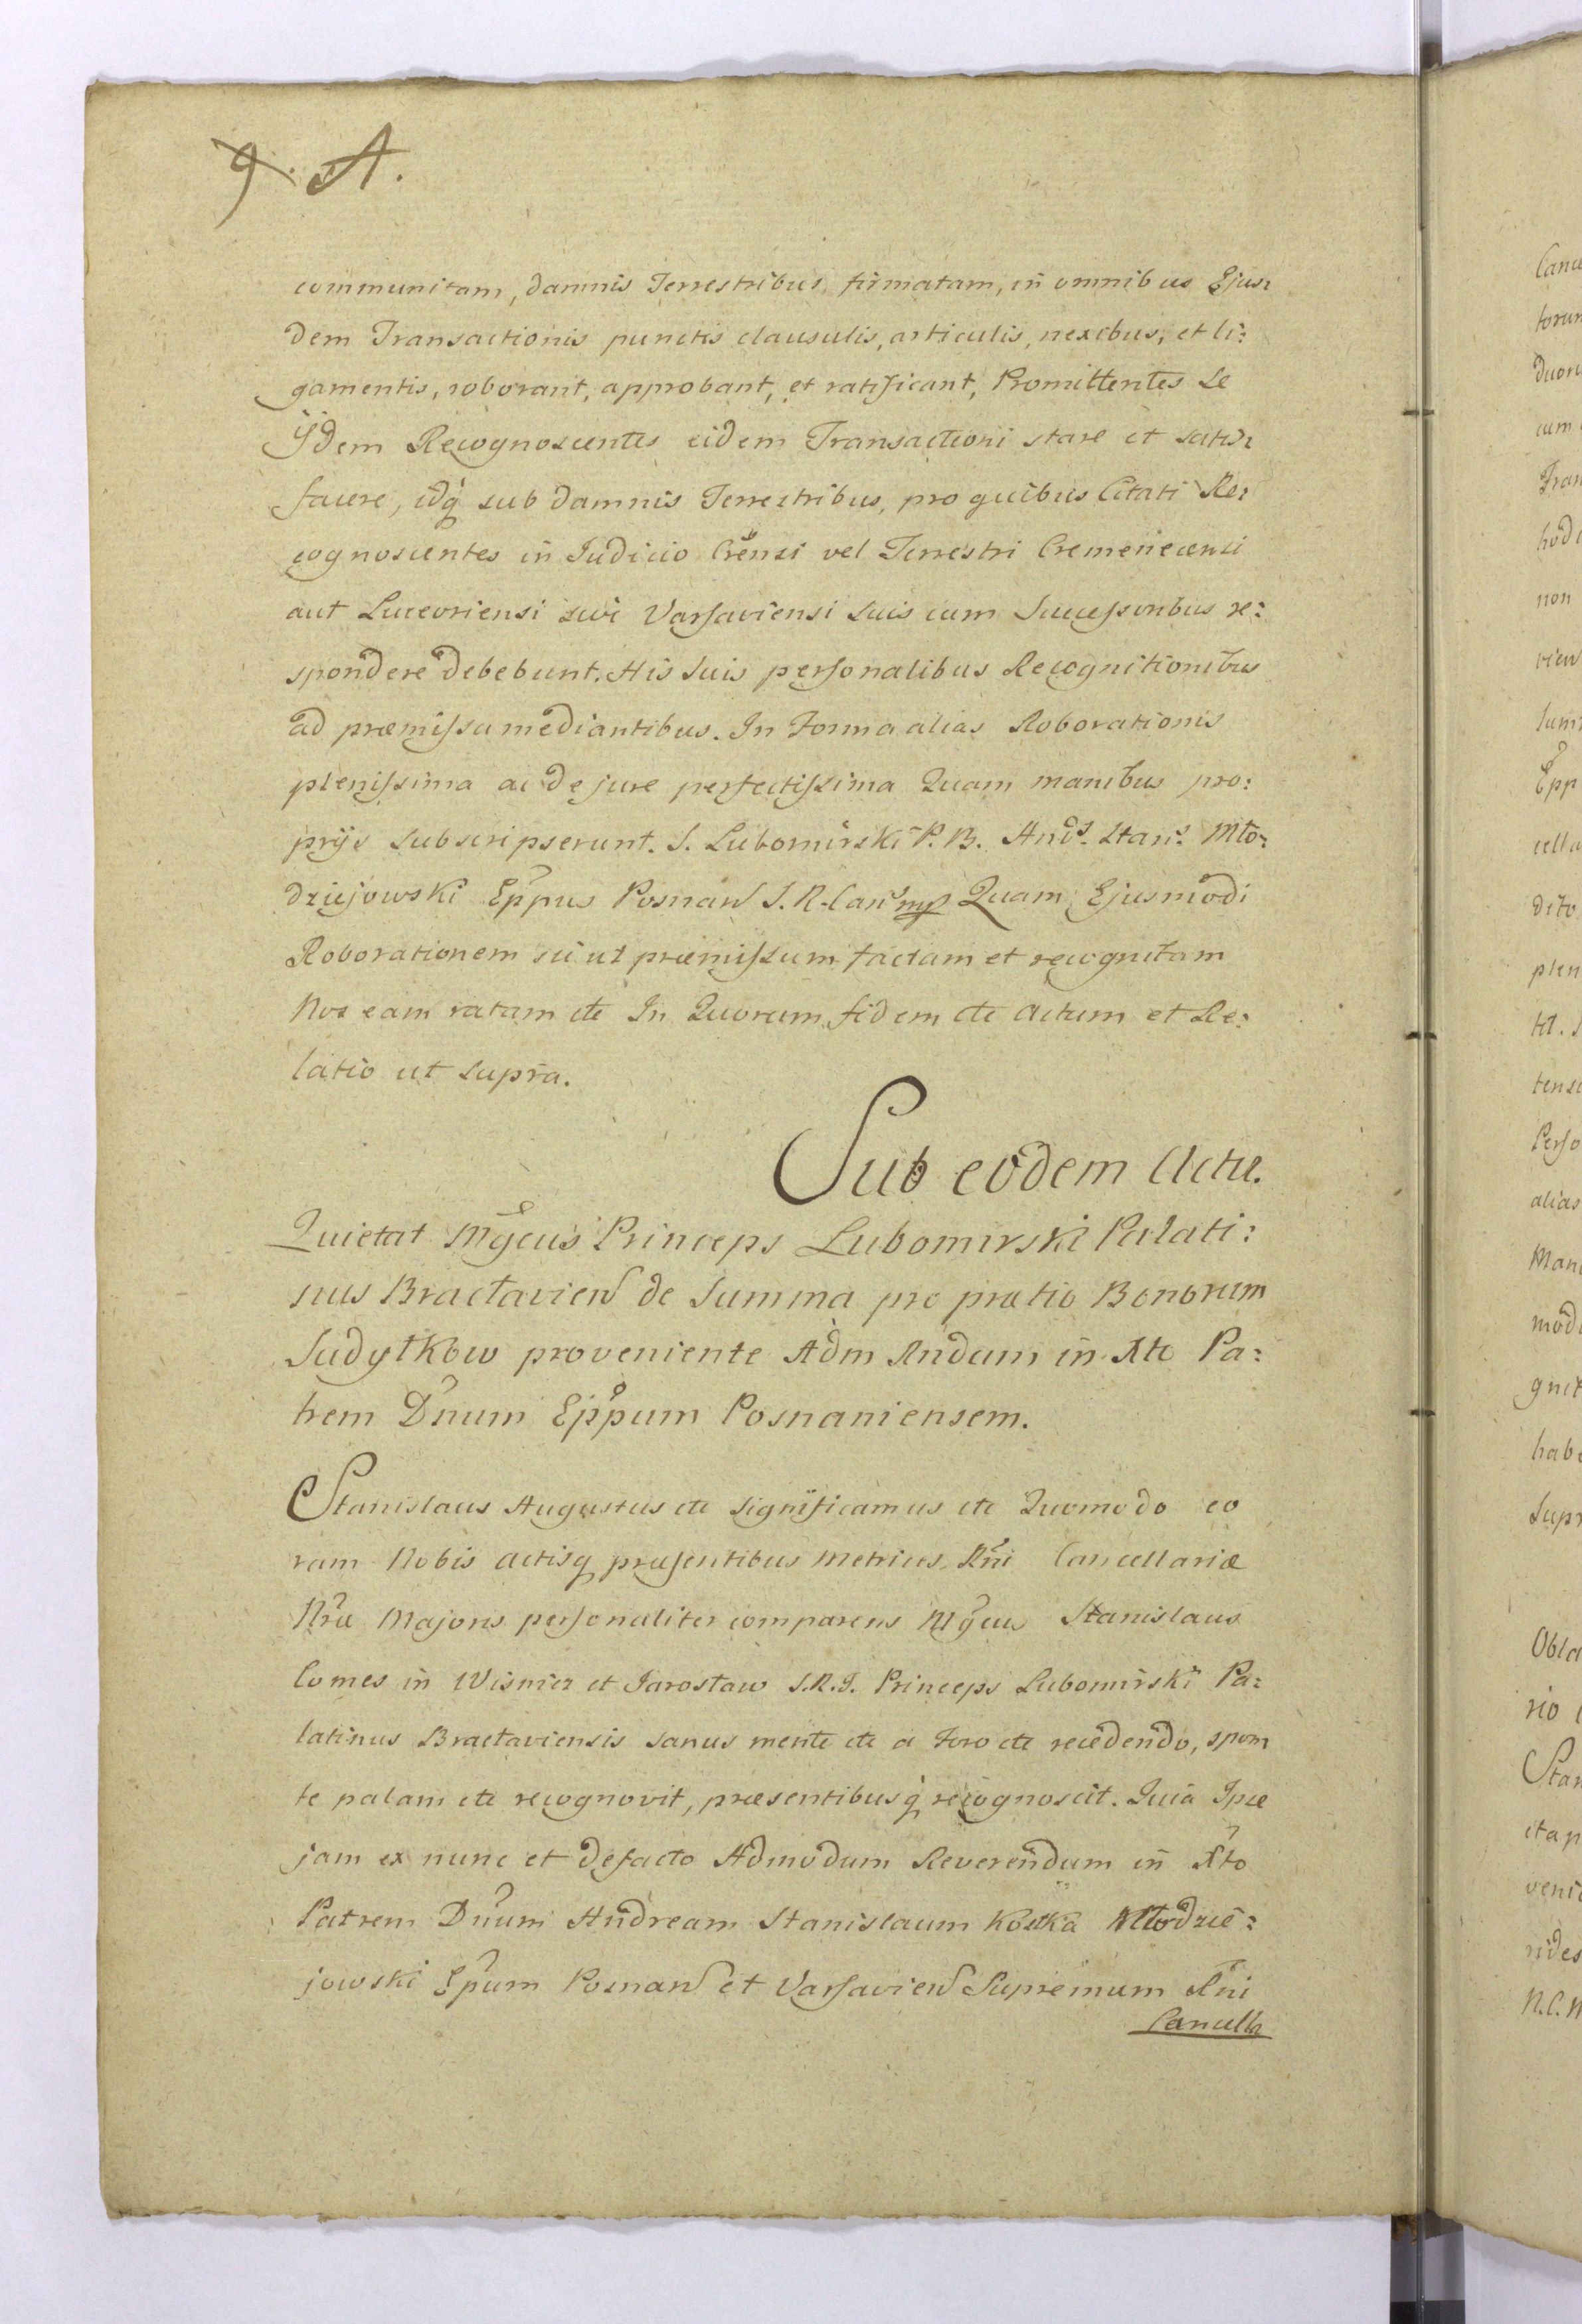 9. A.
communitam, damnis Terrestribus firmatam, in omnibus Ejus:
dem Transactionis punctis clausulis, articulis, nexibus, et li:
gamentis, roborant, approbant, et ratificant, Promittentes se
Ijdem Recognoscentes eidem Transactioni stare et satis:
facere, idq sub damnis Terrestribus, pro quibus Citati Re:
cognoscentes in Judicio Crensi vel Terrestri Cremenecensi
aut Luceoriensi sive Varsaviensi suis cum Successoribus re:
spondere debebunt. His suis personalibus Recognitionibus
ad præmissa mediantibus. In Forma alias Roborationis
plenissima ac de jure perfectissima Quam manibus pro:
prijs subscripserunt. S. Lubomirski P. B. Andr. Stan: Mło:
dziejowski Eppus Posnan S. R. Canc mp Quam Ejusmodi
Roborationem sic ut præmissum factam et recognitam
Nos eam ratam etc In Quorum fidem etc Actum et Re:
latio ut supra.
Sub eodem Actu.
Quietat Mgcus Princeps Lubomirski Palati:
nus Bractavien de Summa pro prætio Bonorum
Sudyłkow proveniente Adm Rndum in Xto Pa:
trem Dnum Eppum Posnaniensem.
Stanislaus Augustus etc significamus etc Quomodo co
ram Nobis actisq præsentibus Metrices Rni Cancellariæ
Nræ Majoris personaliter comparens Mgcus Stanislaus
Comes in Wisnicz et Jarosław S. R. I. Princeps Lubomirski Pa:
latinus Bractaviensis sanus mente etc a Foro etc recedendo, spon
te palam etc recognovit, præsentibusq recognoscit. Quia Ipse
jam ex nunc et defacto Admodum Reverendum in Xto
Patrem Dnum Andream Stanislaum Kostka Młodzie:
jowski Epum Posnan et Varsavien Supremum Rni
Cancella